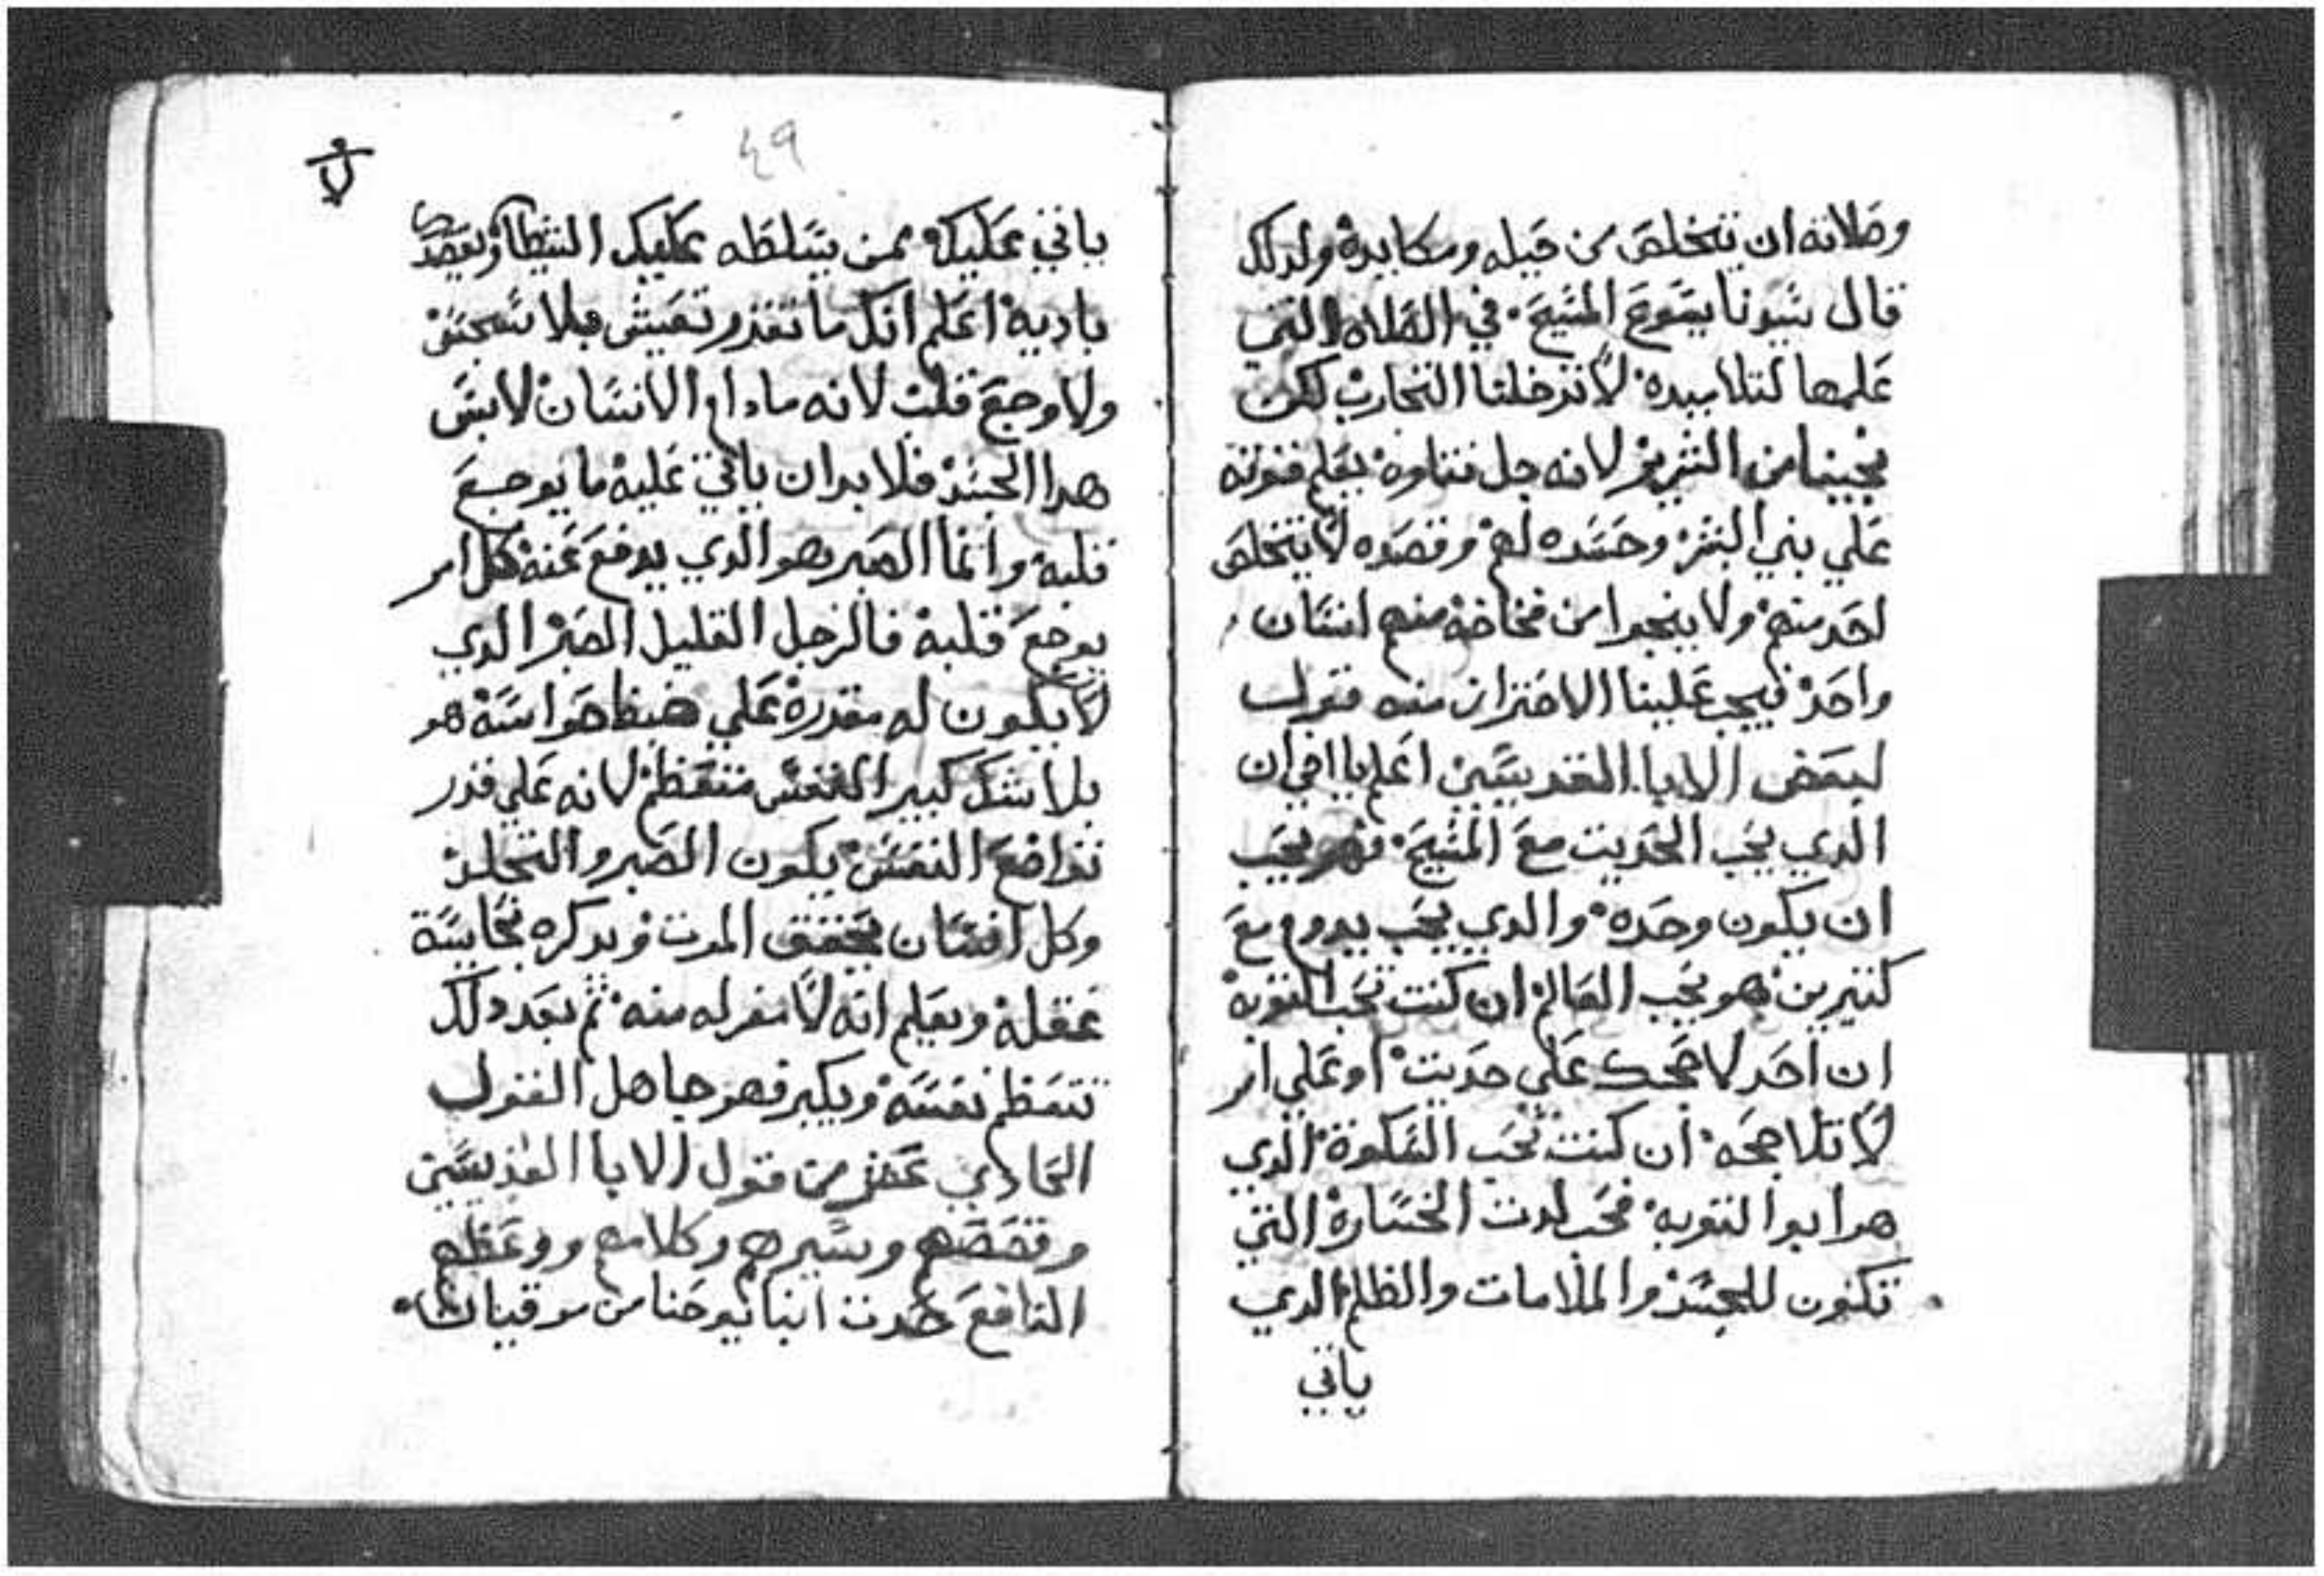 وصلاته ان يتخلص من حيله ومكايده ولدلك
قال سيونا يسوع المسيح. في الصلاه التي
علمها لتلاميده لا تدخلنا التجارب لكن
نجينا من الشرير لانه جل تناوه يعلم فنونه
علي بني البشر وحسده لهم وقصده لا يتخلص
احد منهم ولا ينجوا من فخاخه منهم انسان
واحد فيجب علينا الاحتراز منه قول
لبعض الابا القديسين اعلم يا اخي ان
الدي يحب الحديت مع المسيح. فهو يحب
ان يكون وحده والدي يحب يدوم مع
كتيرين فهو يحب العالم ان كنت تحب التوبه
ان احد لا ضحك علي حديت او علي امر
لا تلاججه ان كنت تحب السكوة الدي
هو ابو التوبه فحب لدت الخسارة التي
تكون للجسد والملامات والظلم الدي
ياتي
٤٩
ياتي عليك ممن يسلطه عليك الشيطان ويقصد
باديه اعلم انك ما تقدر تعيش بلا سجس
ولا وجع قلب لانه ما دام الانسان لابس
هدا الجسد فلا بد ان ياتي عليه ما يوجع
قلبه وانما الصبر هو الدي يدفع عنه كل امر
يوجع قلبه فالرجل القليل الصبر الدي
لا يكون له مقدره علي ضبط حواسه هو
بلا شك كبير النفس متعظم لانه علي قدر
تواضع النفس يكون الصبر والتجلد
وكل انسان يحقق الموت ويدكره بحاسة
عقله ويعلم انه لا مفر له منه تم بعد دلك
تتعظم نفسه ويكبر فهو جاهل القول
الحادي عشر من قول الابا القديسين
وقصصهم وسيرهم وكلامهم ووعظهم
النافع حدت انبا يوحنا من